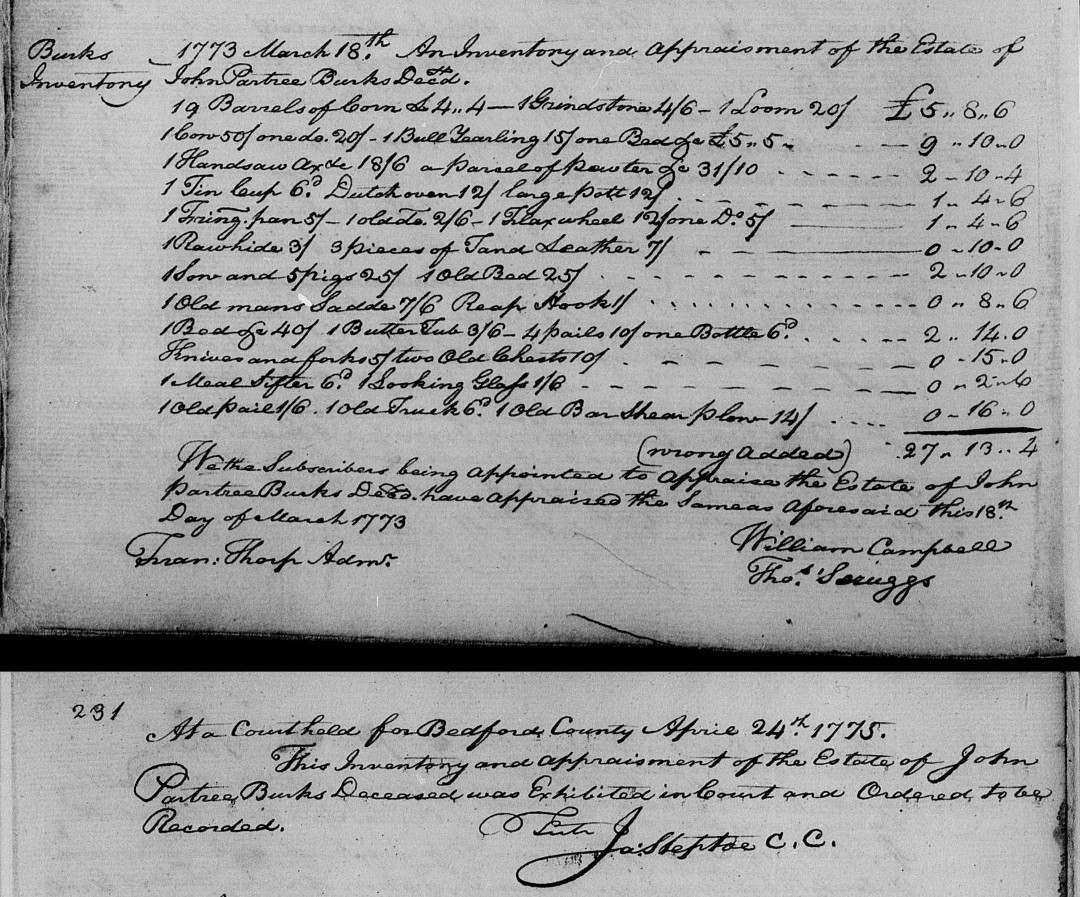 Burks
Inventory
1773 March 18th. An Inventory and appraisment of the Estate of
John Partree Burks Decd.
19 Barrels of Corn £4..4 — 1 Grindstone 4/6 - 1 Loom 20/ £5..8..6
1 Cow 50/ one do. 20/ - 1 Bull Yearling 15/ one Bed &c £5..5.. 9..10..0
1 Handsaw Ax &c 18/6 a parcel of pewter &c 31/10 2-10-4
1 Tin Cup 6d. Dutch oven 12/ large pott 12/ 1..4-6
1 Fring. pan 5/ - 1 old do. 2/6 - 1 Flax wheel 12/ one Do. 5/ 1..4-6
1 Rawhide 3/ 3 pieces of Tand Leather 7/ 0-10-0
1 Sow and 5 pigs 25/ 1 Old Bed 25/ 2-10-0
1 Old mans Sadde 7/6 Reap Hook 1/ 0..8..6
1 Bed &c 40/ 1 Butter Tub 3/6 - 4 pails 10/ one Bottle 6d. 2..14.0
Knives and forks 5/ two Old Chests 10/ 0-15-0
1 Meal Sifter 6d. 1 Looking Glass 1/6 0-2-6
1 Old pail 1/6. 1 Old Truck 6d. 1 Old Bar Shear plow 14/ 0-16-0
(wrong added) 27..13..4
We the Subscribers being appointed to appraise the Estate of John
Partree Burks Decd. have appraised the Same as aforesaid this 18th
Day of March 1773
William Campbell
Fran: Thorp Admr.
Thos. Scruggs
231
At a Court held for Bedford County April 24th. 1775.
This Inventory and appraisment of the Estate of John
Partree Burks Deceased was Exhibited in Court and Ordered to be
Recorded.
Ja: Steptoe C. C.